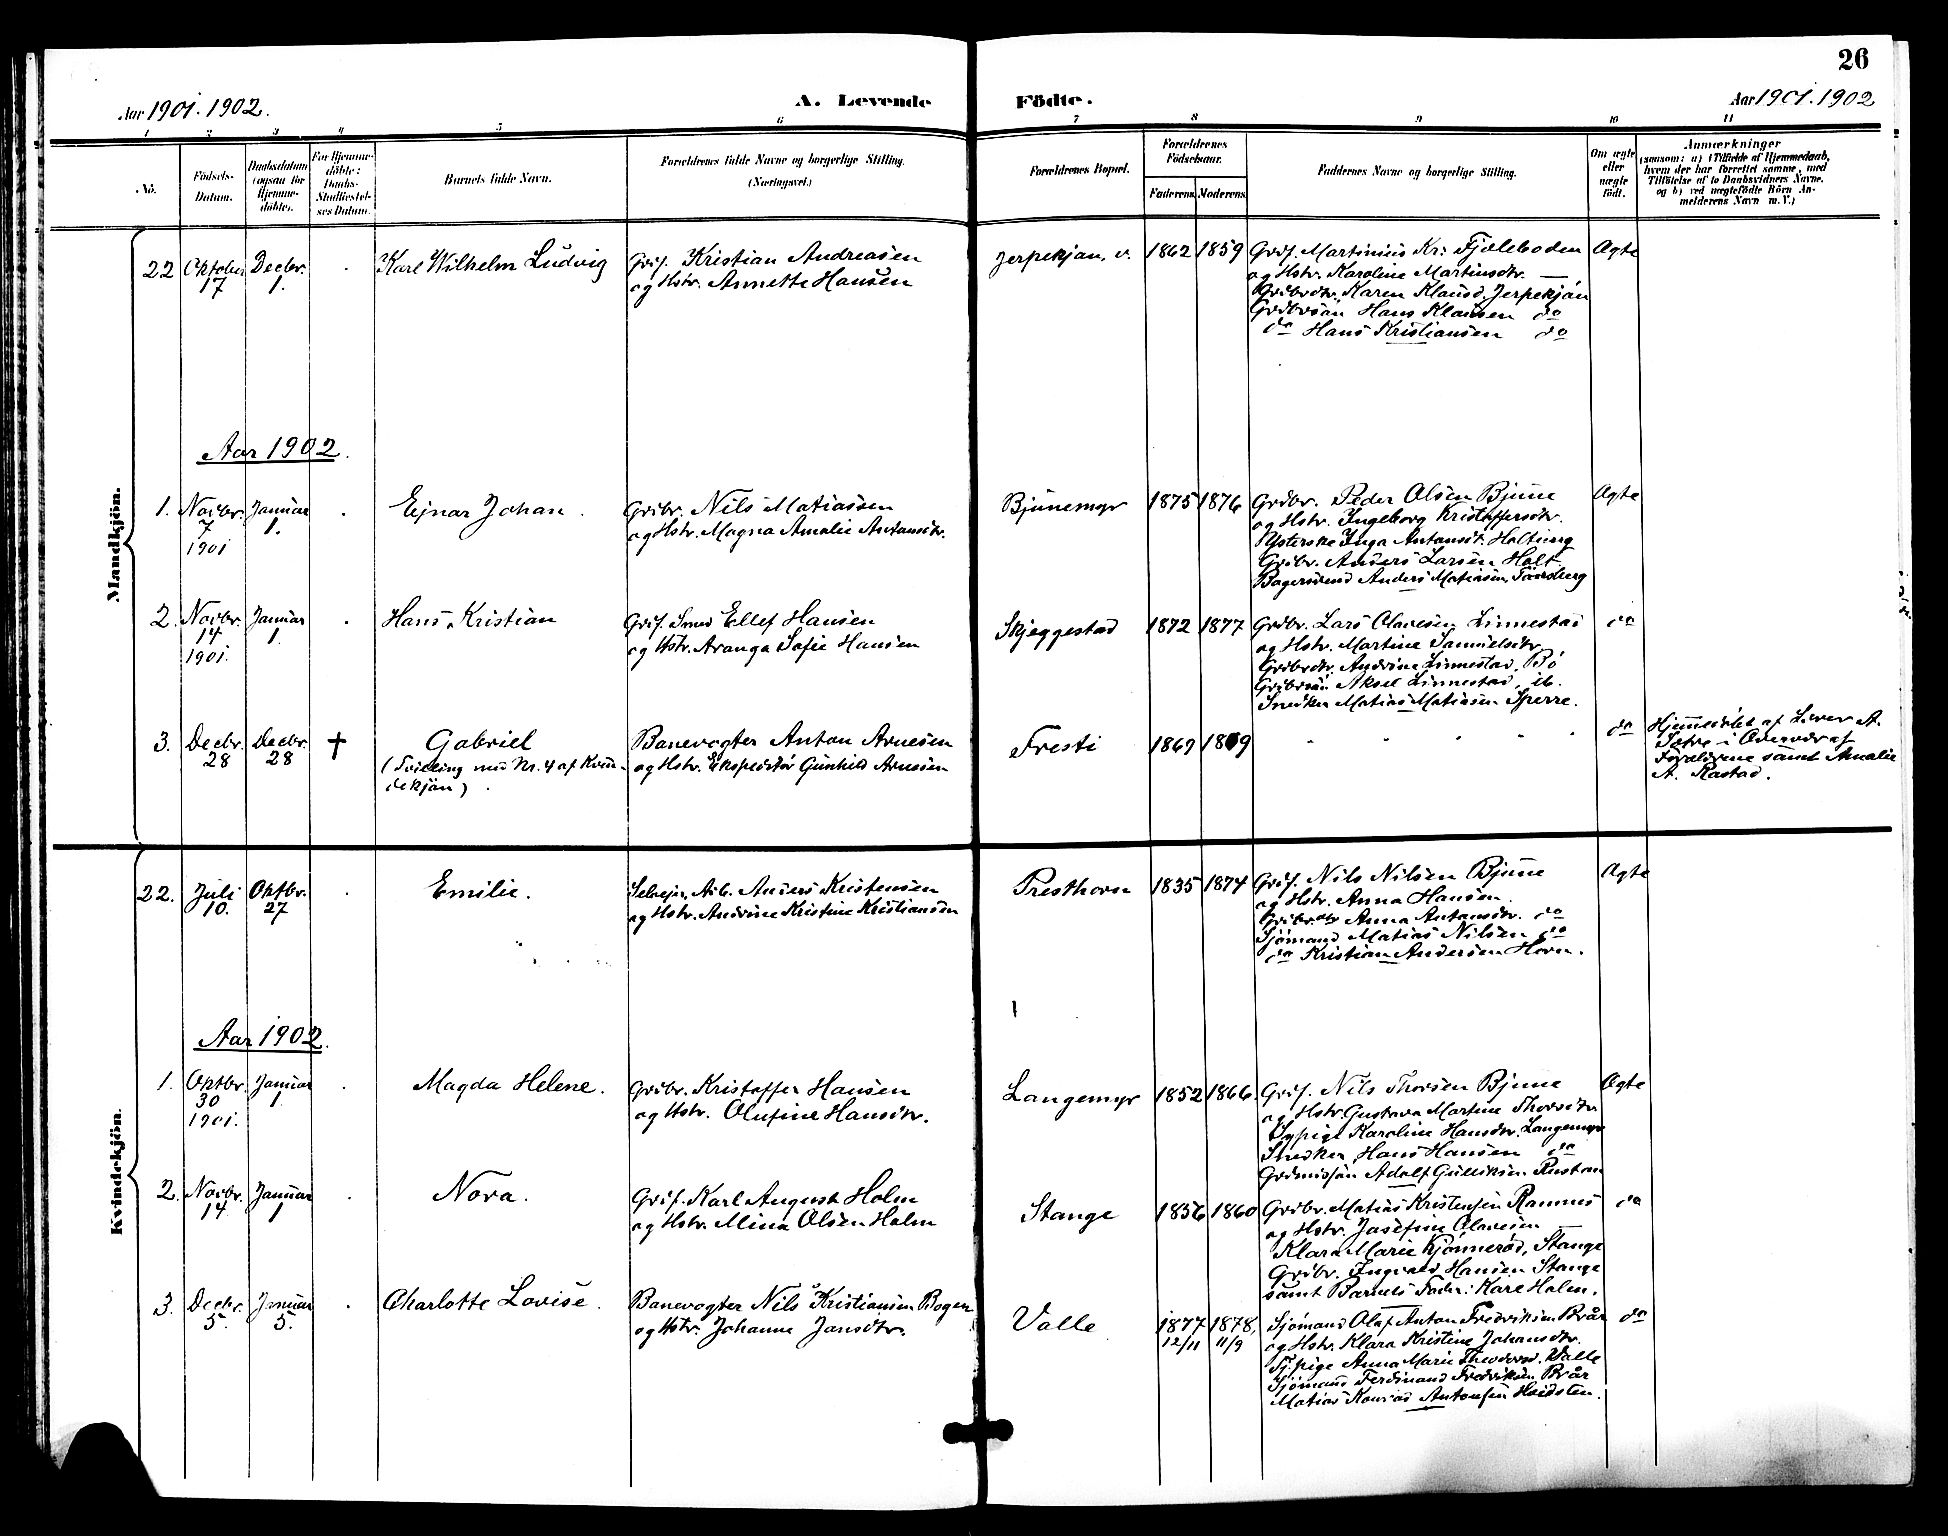 26
Aar 1901. 1902.
A. Levende Födte.
Aar 1901. 1902
1 2 3 4 5 6 7 8 9 10 11
No.
Födsels-Datum.
Daabsdatum (ogsaa for Hjemme-döbte).
For Hjemme-döbte: Daabs-Stadfæstel-ses Datum.
Barnets fulde Navn.
Forældrenes fulde Navne og borgerlige Stilling.
(Næringsvei.)
Forældrenes Bopæl.
Forældrenes Födselsaar.
Faderens. Moderens.
Faddernes Navne og borgerlige Stilling.
Om ægte eller uægte födt.
Anmærkninger
(saasom: a) i Tilfælde af Hjemmedaab,
hvem der har forrettet samme, med
Tilföielse af to Daabsvidners Navne.
og b) ved uægtefödte Börn An-
melderens Navn m. V.)
Mandkjön.
22 Oktober 17 Decbr. 1. Karl Wilhelm Ludvig
Grif. Kristian Andreasen
og Hstr. Annette Hansen
Jerpekjøn, v. 1862 1859
Grif. Martinius Kr. Fjæleboden
og Hstr. Karoline Martinsdtr. —
Grdbrdtr. Karen Klausd, Jerpekjøn
Grdbrsøn Hans Klausen do
do Hans Kristiansen do
Ægte
Aar 1902.
1. Novbr. 7 1901 Januar 1. Ejnar Johan.
Grdbr. Nils Matiassen
og Hstr. Magna Amalie Antonsdtr.
Bjunemyr 1875 1876
Grdbr. Peder Olsen Bjune
og Hstr. Ingeborg Kristoffersdtr.
Inga Antonsdt. Holtung
Grdbr. Anders Larsen Holt
Bagersvend Anders Matiasen, Tønsberg
Ægte
2. Novbr. 14 1901. Januar 1 Hans Kristian
Grif. Smed Ellef Hansen
og Hstr. Aranga Sofie Hansen
Skjeggestad 1872 1877
Grdbr. Lars Olavesen Linnestad
og Hstr. Martine Samuelsdtr.
Grdbrdtr. Andrine Linnestad, Bø
Grdbrsøn Aksel Linnestad, ib.
Snedker Matias Matiasen Sperre.
do
3. Decbr. 28 Decbr. 28 † Gabriel
(Tvilling med Nr. 4 af Kvin-
dekjøn).
Banevogter Anton Arnesen
og Hstr. Ekspeditør Gunhild Arnesen
Fresti 1869 1869
do
Hjemmedøbt af Lærer A.
Sætre i Overvær af
Forældrene samt Amalie
A. Rastad.
Kvindekjön.
22. Juli 10. Oktbr. 27 Emilie.
Selvejer, Arb. Anders Kristensen
og Hstr. Andrine Kristine Kristiansen
Presthorn 1835 1874
Grif. Nils Nilsen Bjune
og Hstr. Anna Hansen.
Grdbrdtr Anna Antonsdtr. do
Sjømand Matias Nilsen do
do Kristian Andersen Horn.
Ægte
Aar 1902.
1. Oktbr. 30 1901. Januar 1 Magda Helene.
Grdbr. Kristoffer Hansen
og Hstr. Olufine Hansdtr.
Langemyr 1852 1866.
Grif. Nils Thorsen Bjune
og Hstr. Gustava Martine Thorsdtr
Sypige Karoline Hansdtr. Langemyr
Snedker Hans Hansen do
Adolf Gulliksen Rustan
Ægte
2. Novbr. 14 Januar 1 Nora.
Grif. Karl August Holm
og Hstr. Mina Olsen Holm
Stange 1856 1860
Grdbr. Matias Kristensen Ramnes
og Hstr. Josefine Olavesen —
Klara Marie Kjønnerød, Stange
Grdbr. Ingvald Hansen Stange
samt Barnets Fader: Karl Holm.
do
3. Decbr. 5. Januar 5. Charlotte Lovise.
Banevogter Nils Kristiansen Bogen
og Hstr. Johanne Jansdtr.
Valle 1877 12/11 1878, 11/9
Sjømand Olaf Anton Fredriksen Brår
og Hstr. Klara Kristine Johansdtr.
Tj.pige Anna Marie Theodorsd. Valle
Sjømand Ferdinand Fredriksen Brår
Matias Konrad Antonsen Heidsten.
do